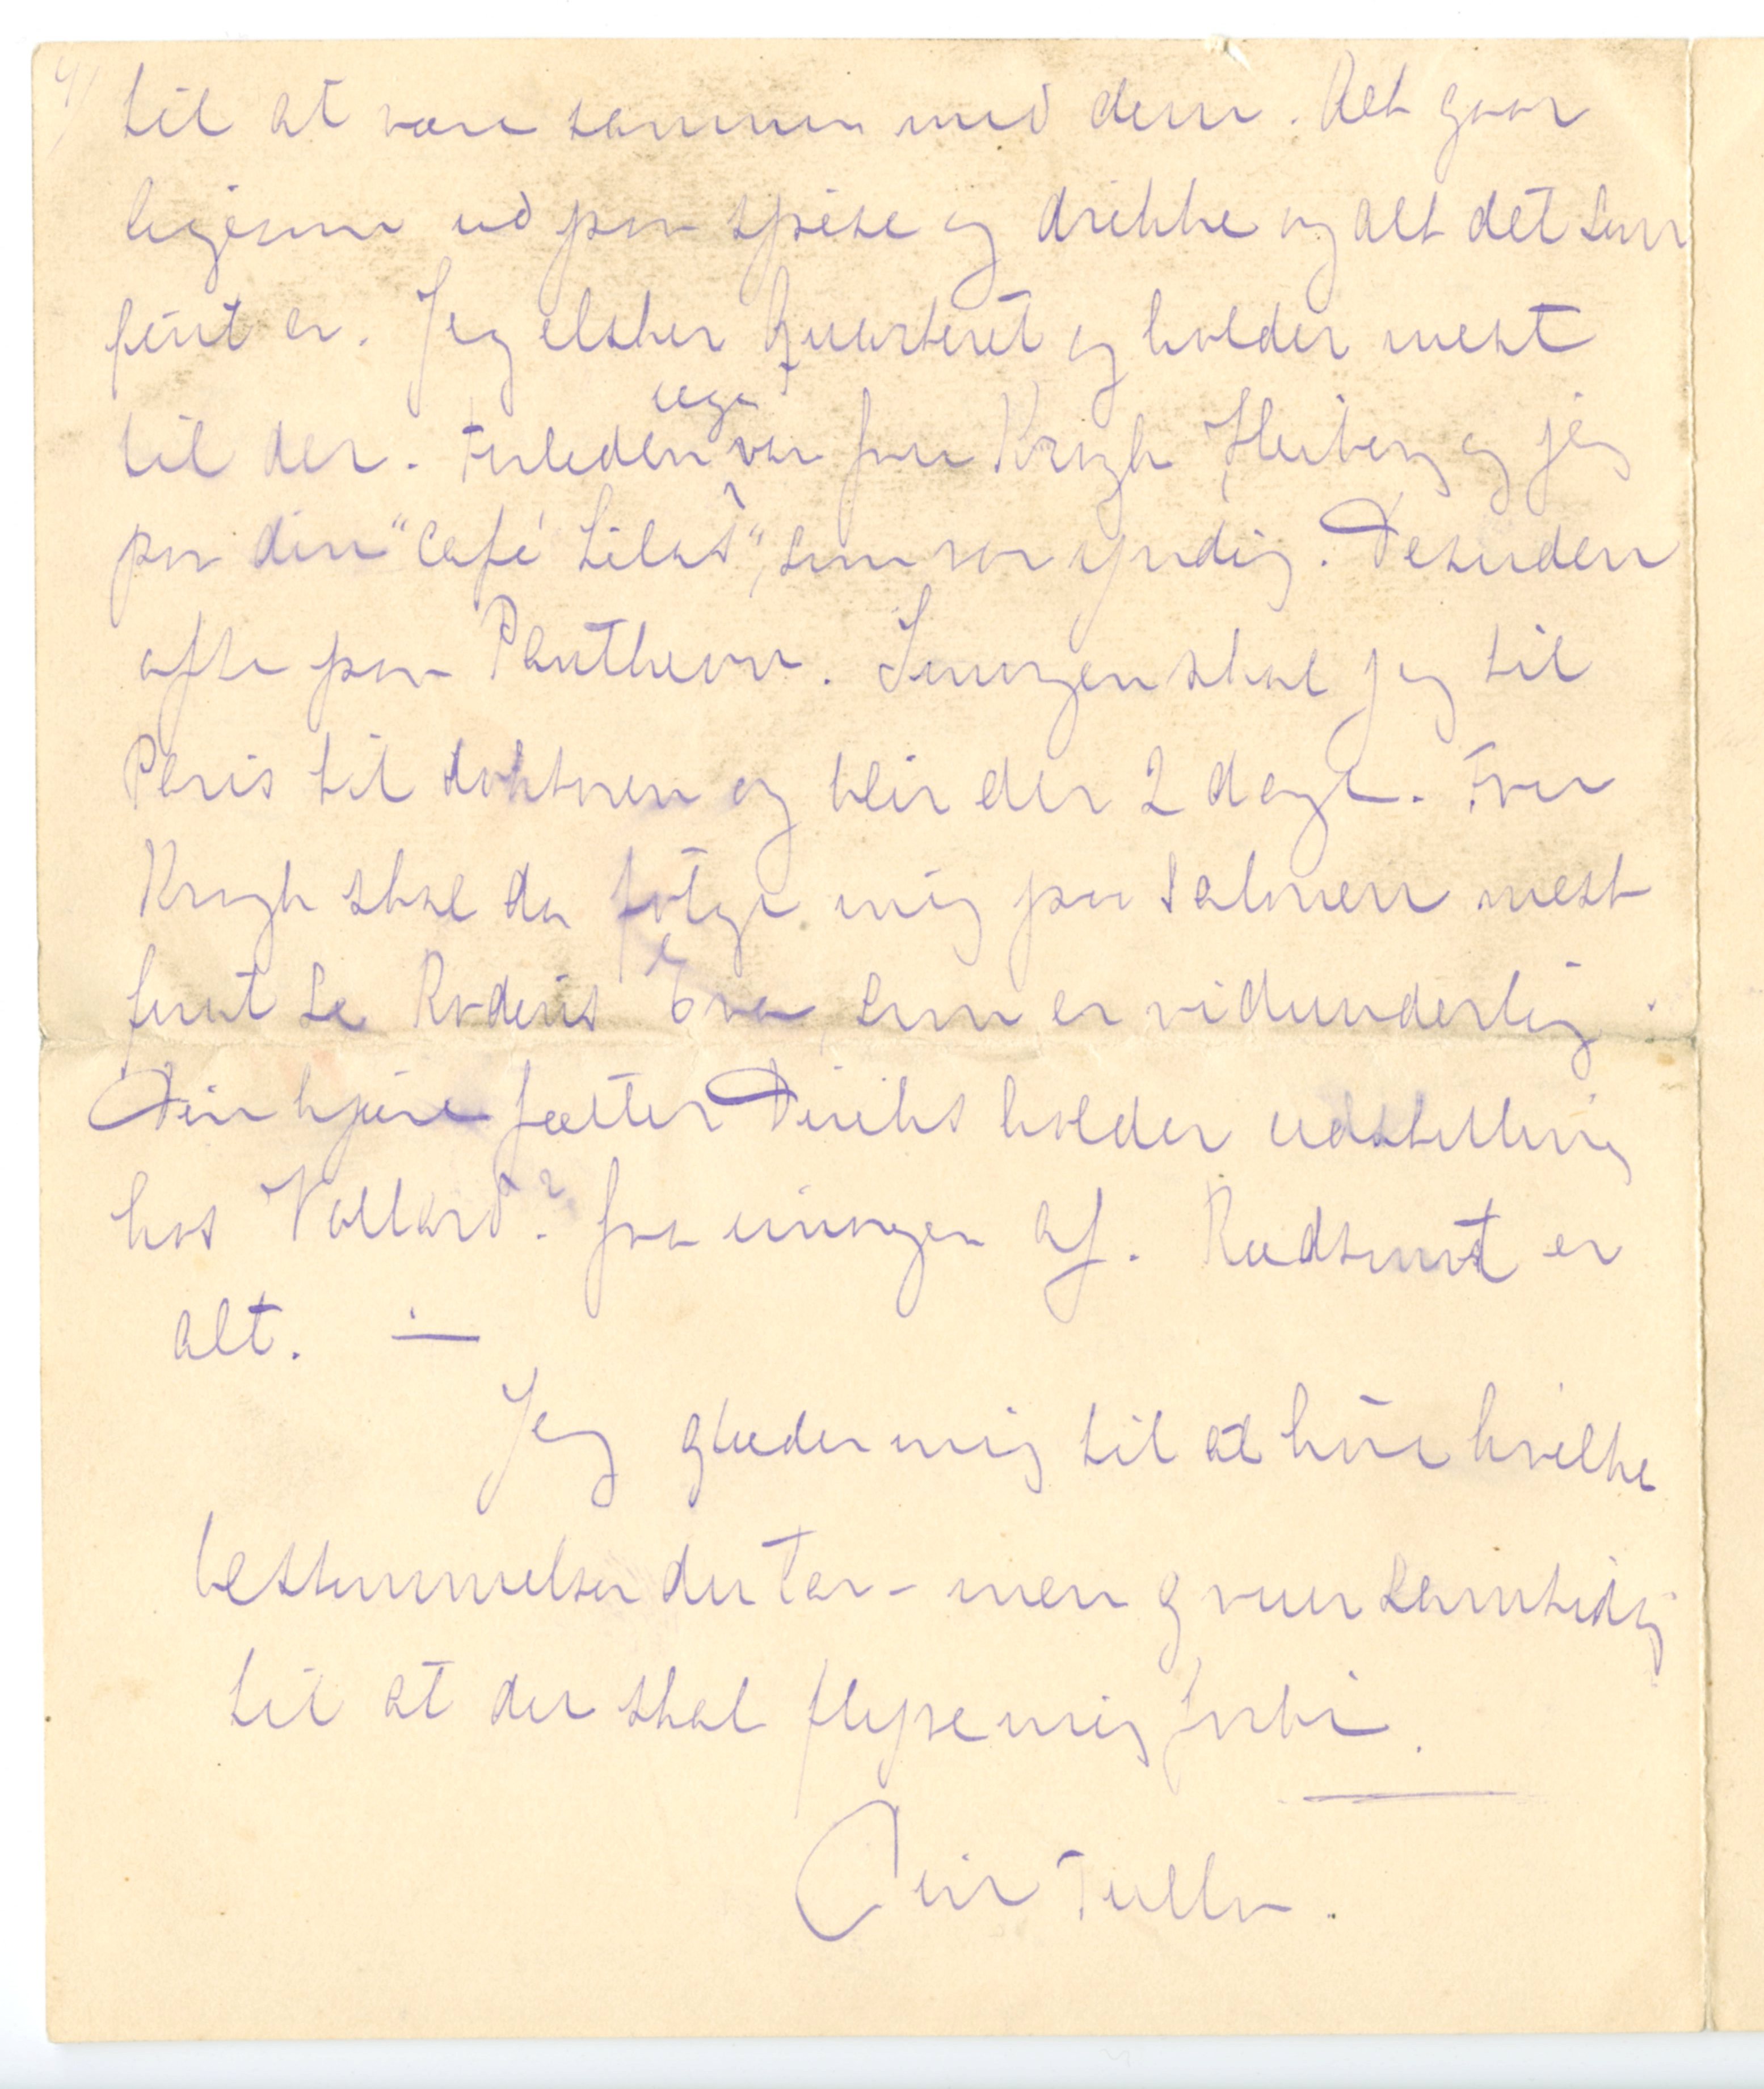 4/
til at være sammen med dem. Alt gaar
ligesom ud paa spise og drikke og alt det som
fint er. Jeg elsker Quarteret og holder mest
til der. Forleden uge var fru Krogh, Heiberg og jeg
paa din "Café Lilas", som var yndig. Desuden
ofte paa Pantheon. Imorgen skal jeg til
Paris til doktoren og blir der 2 dage. Fru
Krogh skal da følge mig paa salonen mest
forat se Rodins Eva som er vidunderlig.
Din kjære fætter Diriks holder udstilling
hos Vollard? fra imorgen af. Rædsomt er
alt. —
Jeg glæder mig til at høre hvilke
bestemmelser du tar – men gruer samtidig
til at du skal flyve mig forbi.
Din Tulla.